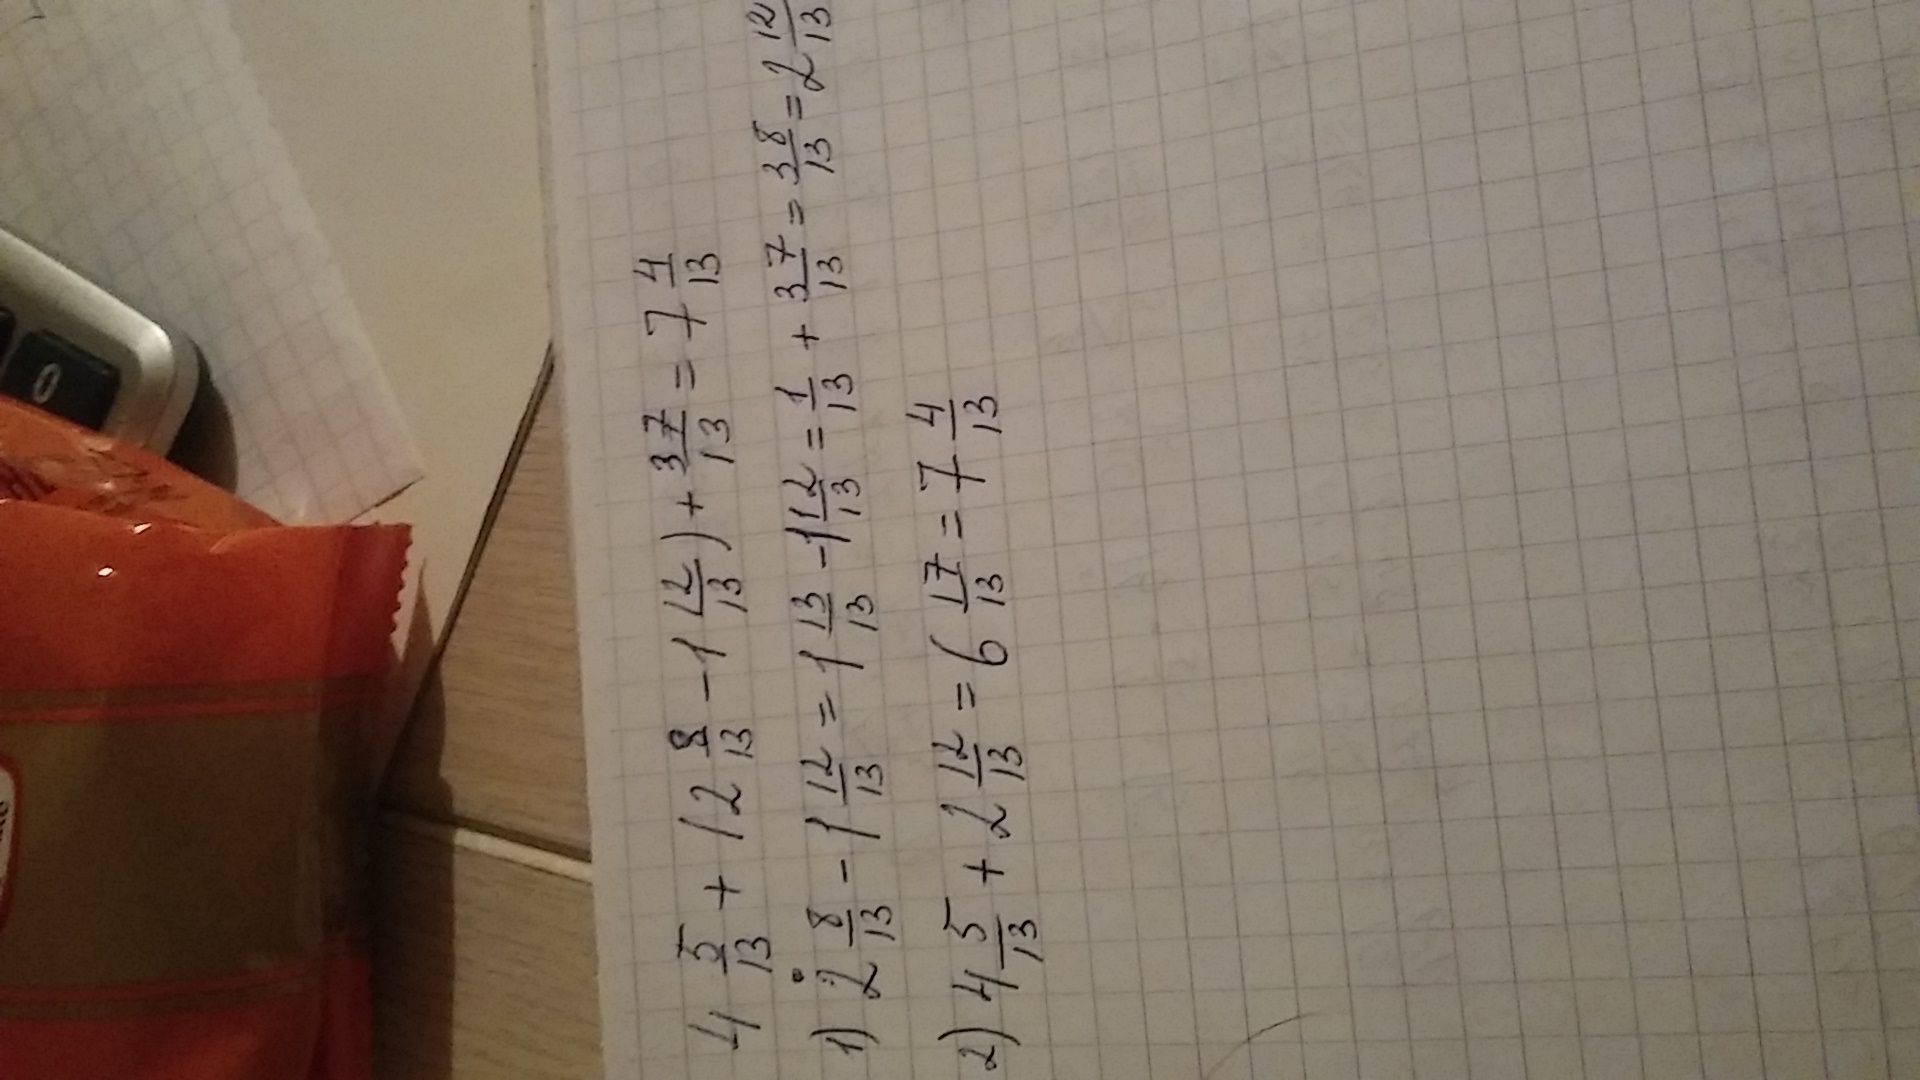 4 5/13 + (2 8/13 - 1 12/13) + 37/13 = 7 4/13
1) 2 8/13 - 1 12/13 = 1 13/13 - 1 12/13 = 1/13 + 37/13 = 38/13 = 2 12/13
2) 4 5/13 + 2 12/13 = 6 17/13 = 7 4/13
0